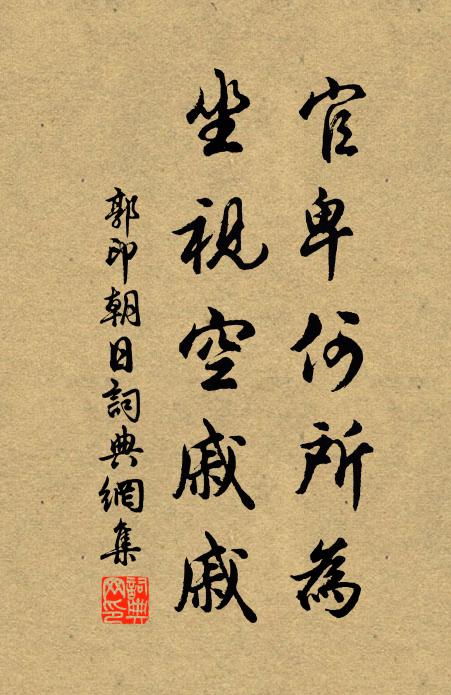 官卑何所為
坐視空戚戚
郭印朝日詞典網集
詞典網印